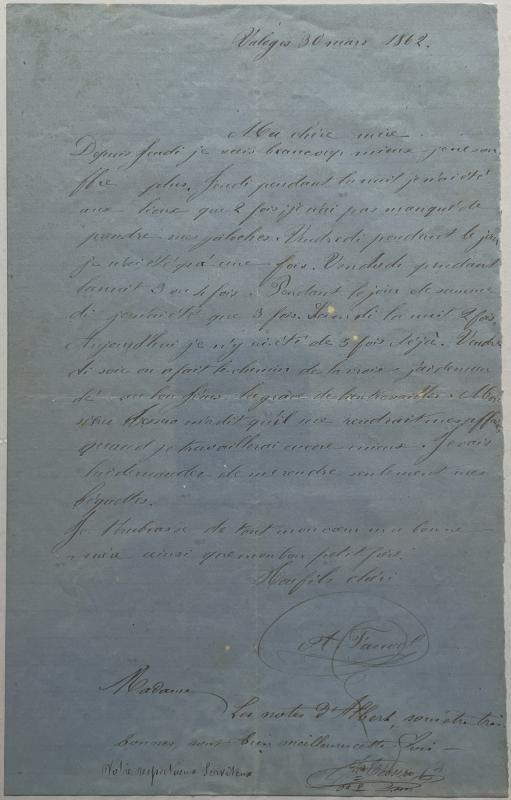 Valoges 30 mars 1862.
Ma chère mère
Depuis Jeudi je vais beaucoup mieux je ne sou
ffre plus. Jeudi pendant la nuit je n'ai été
aux lieux que 2 fois je n'ai pas manqué de
prendre mes galoches. Vendredi pendant le jour
je n'ai été qu'à une fois. Vendredi pendant
la nuit 3 ou 4 fois. Pendant le jour de same
di je n'ai été que 3 fois. Samedi la nuit 2 fois
Aujourd'hui je n'y ai été de 5 fois déjà. Vendre
di soir on a fait le chemin de la croix j'ai deman
dé au bon Jésus la grâce de bien travailler. Mon
m'a dit qu'il me rendrait mes affaires
quand je travaillerai encore mieux. Je vais
lui demander de me rendre seulement mes
Je t'embrasse de tout mon cœur ma bonne
mère ainsi que mon bon petit père.
Ton fils chéri
A
Madame
Les notes d'Albert, sans être très
bonnes, sont bien meilleures cette fois
Votre respectueux Serviteur